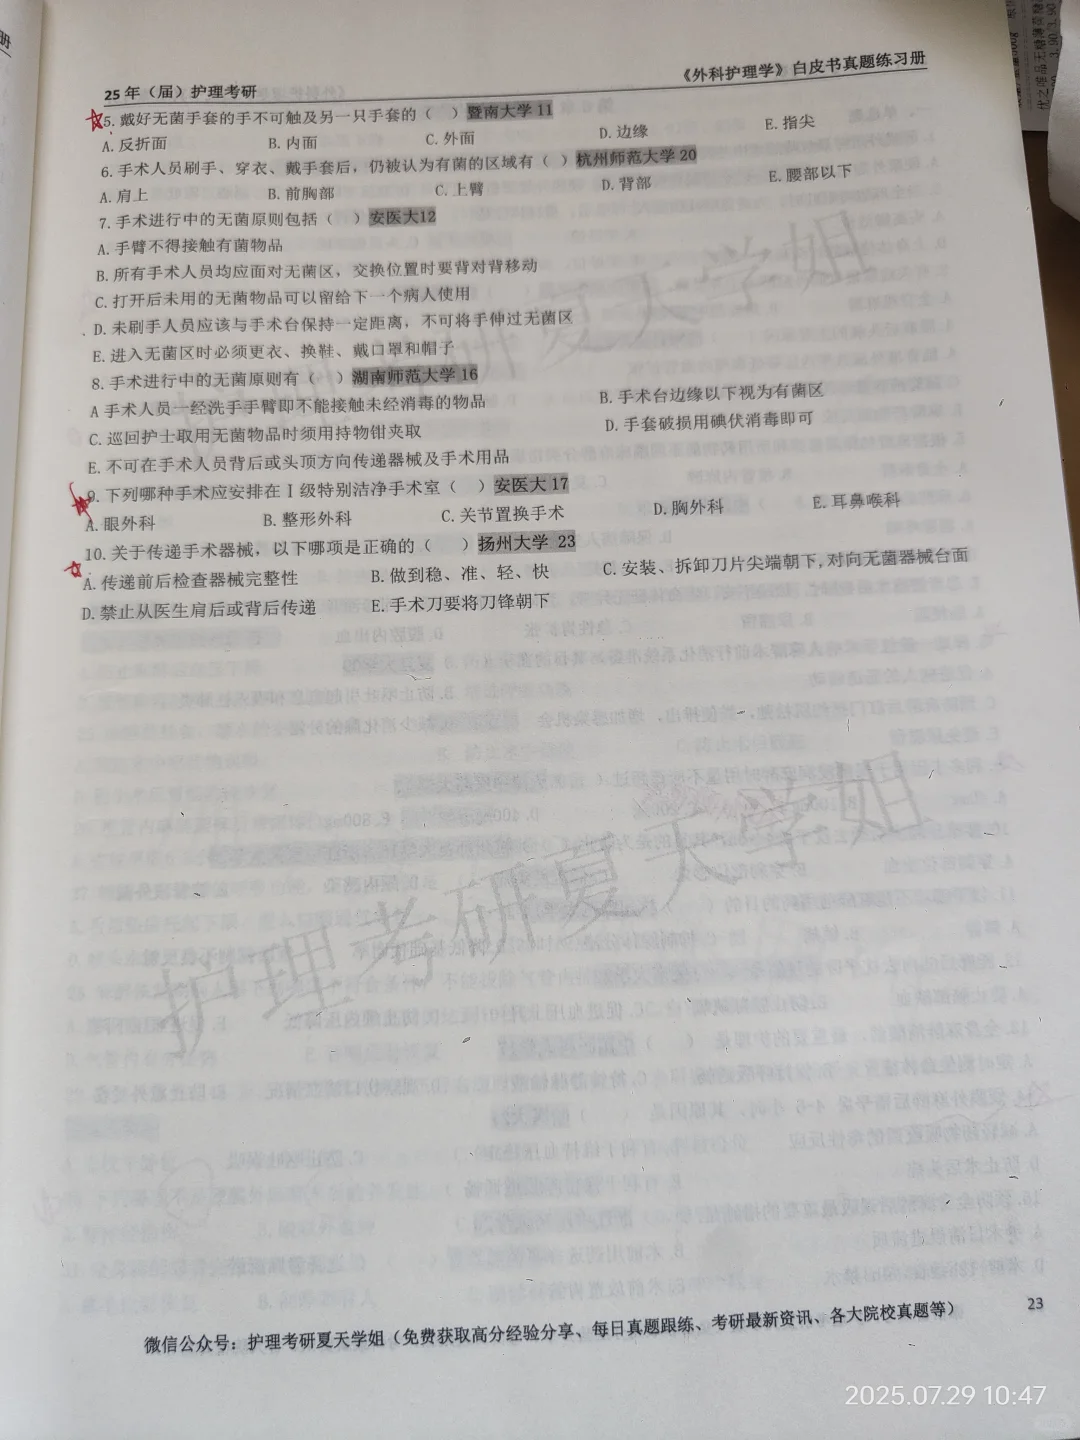 25 年（届）护理考研
《外科护理学》白皮书真题练习册
5. 戴好无菌手套的手不可触及另一只手套的（ ）暨南大学 11
A. 反折面 B. 内面 C. 外面 D. 边缘 E. 指尖
6. 手术人员刷手、穿衣、戴手套后，仍被认为有菌的区域有（ ）杭州师范大学 20
A. 肩上 B. 前胸部 C. 上臂 D. 背部 E. 腰部以下
7. 手术进行中的无菌原则包括（ ）安医大12
A. 手臂不得接触有菌物品
B. 所有手术人员均应面对无菌区，交换位置时要背对背移动
C. 打开后未用的无菌物品可以留给下一个病人使用
D. 未刷手人员应该与手术台保持一定距离，不可将手伸过无菌区
E. 进入无菌区时必须更衣、换鞋、戴口罩和帽子
8. 手术进行中的无菌原则有（ ）湖南师范大学 16
A 手术人员一经洗手手臂即不能接触未经消毒的物品 B. 手术台边缘以下视为有菌区
C. 巡回护士取用无菌物品时须用持物钳夹取 D. 手套破损用碘伏消毒即可
E. 不可在手术人员背后或头顶方向传递器械及手术用品
9. 下列哪种手术应安排在 I 级特别洁净手术室（ ）安医大 17
A. 眼外科 B. 整形外科 C. 关节置换手术 D. 胸外科 E. 耳鼻喉科
10. 关于传递手术器械，以下哪项是正确的（ ）扬州大学 23
A. 传递前后检查器械完整性 B. 做到稳、准、轻、快 C. 安装、拆卸刀片尖端朝下,对向无菌器械台面
D. 禁止从医生肩后或背后传递 E. 手术刀要将刀锋朝下
护理考研夏天学姐
微信公众号：护理考研夏天学姐（免费获取高分经验分享、每日真题跟练、考研最新资讯、各大院校真题等）
23
2025.07.29 10:47